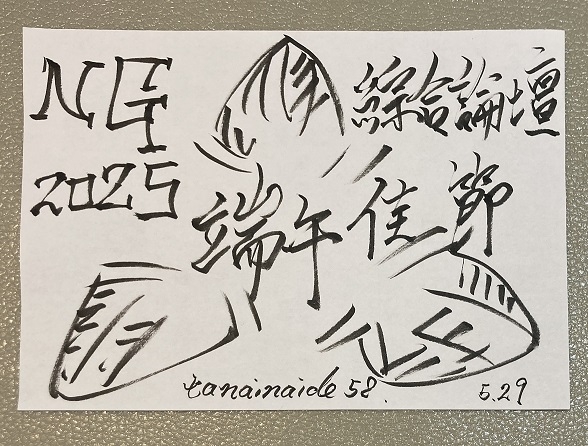 NG 綜合論壇
2025
端午佳節
tanainaide 58.
5.29